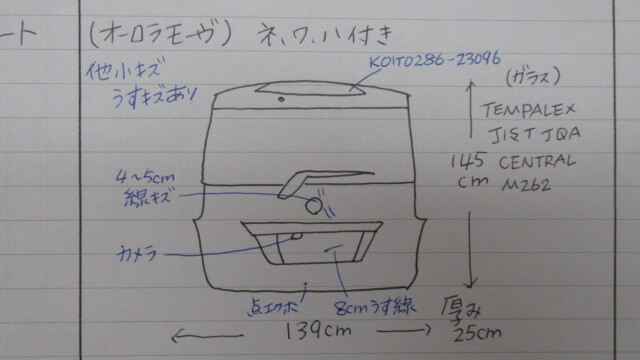 ート
(オーロラモーヴ) ネ、ワ、ハイ付き
他小キズ
うすキズあり
KOITO286-23096
(ガラス)
TEMPALEX
JIST JQA
CENTRAL
M262
145
cm
4~5cm
線キズ
カメラ
点エクボ
8cmうす線
139cm
厚み
25cm